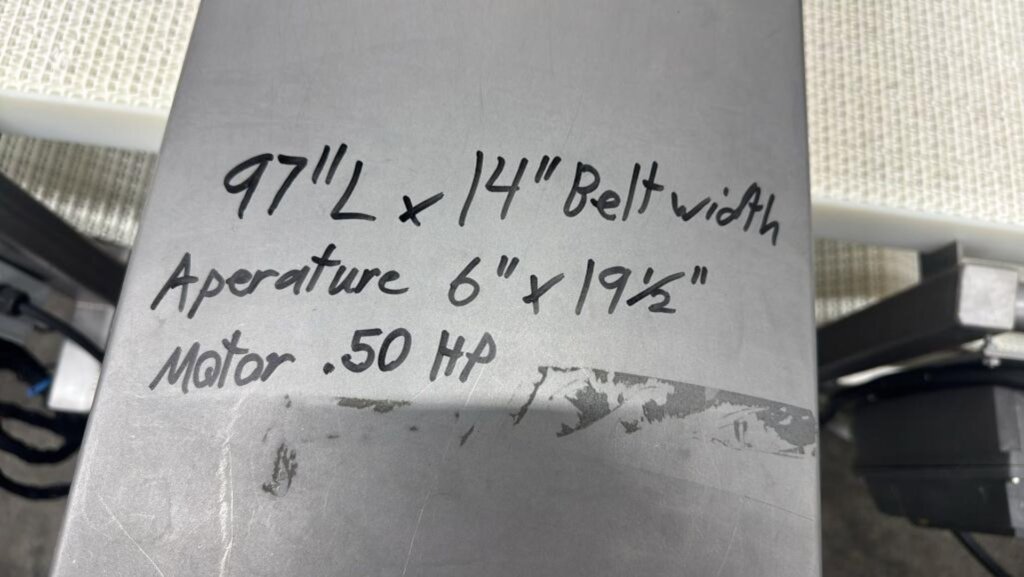 97"L x 14" Belt width
Aperature 6" x 19½"
Motor .50 HP